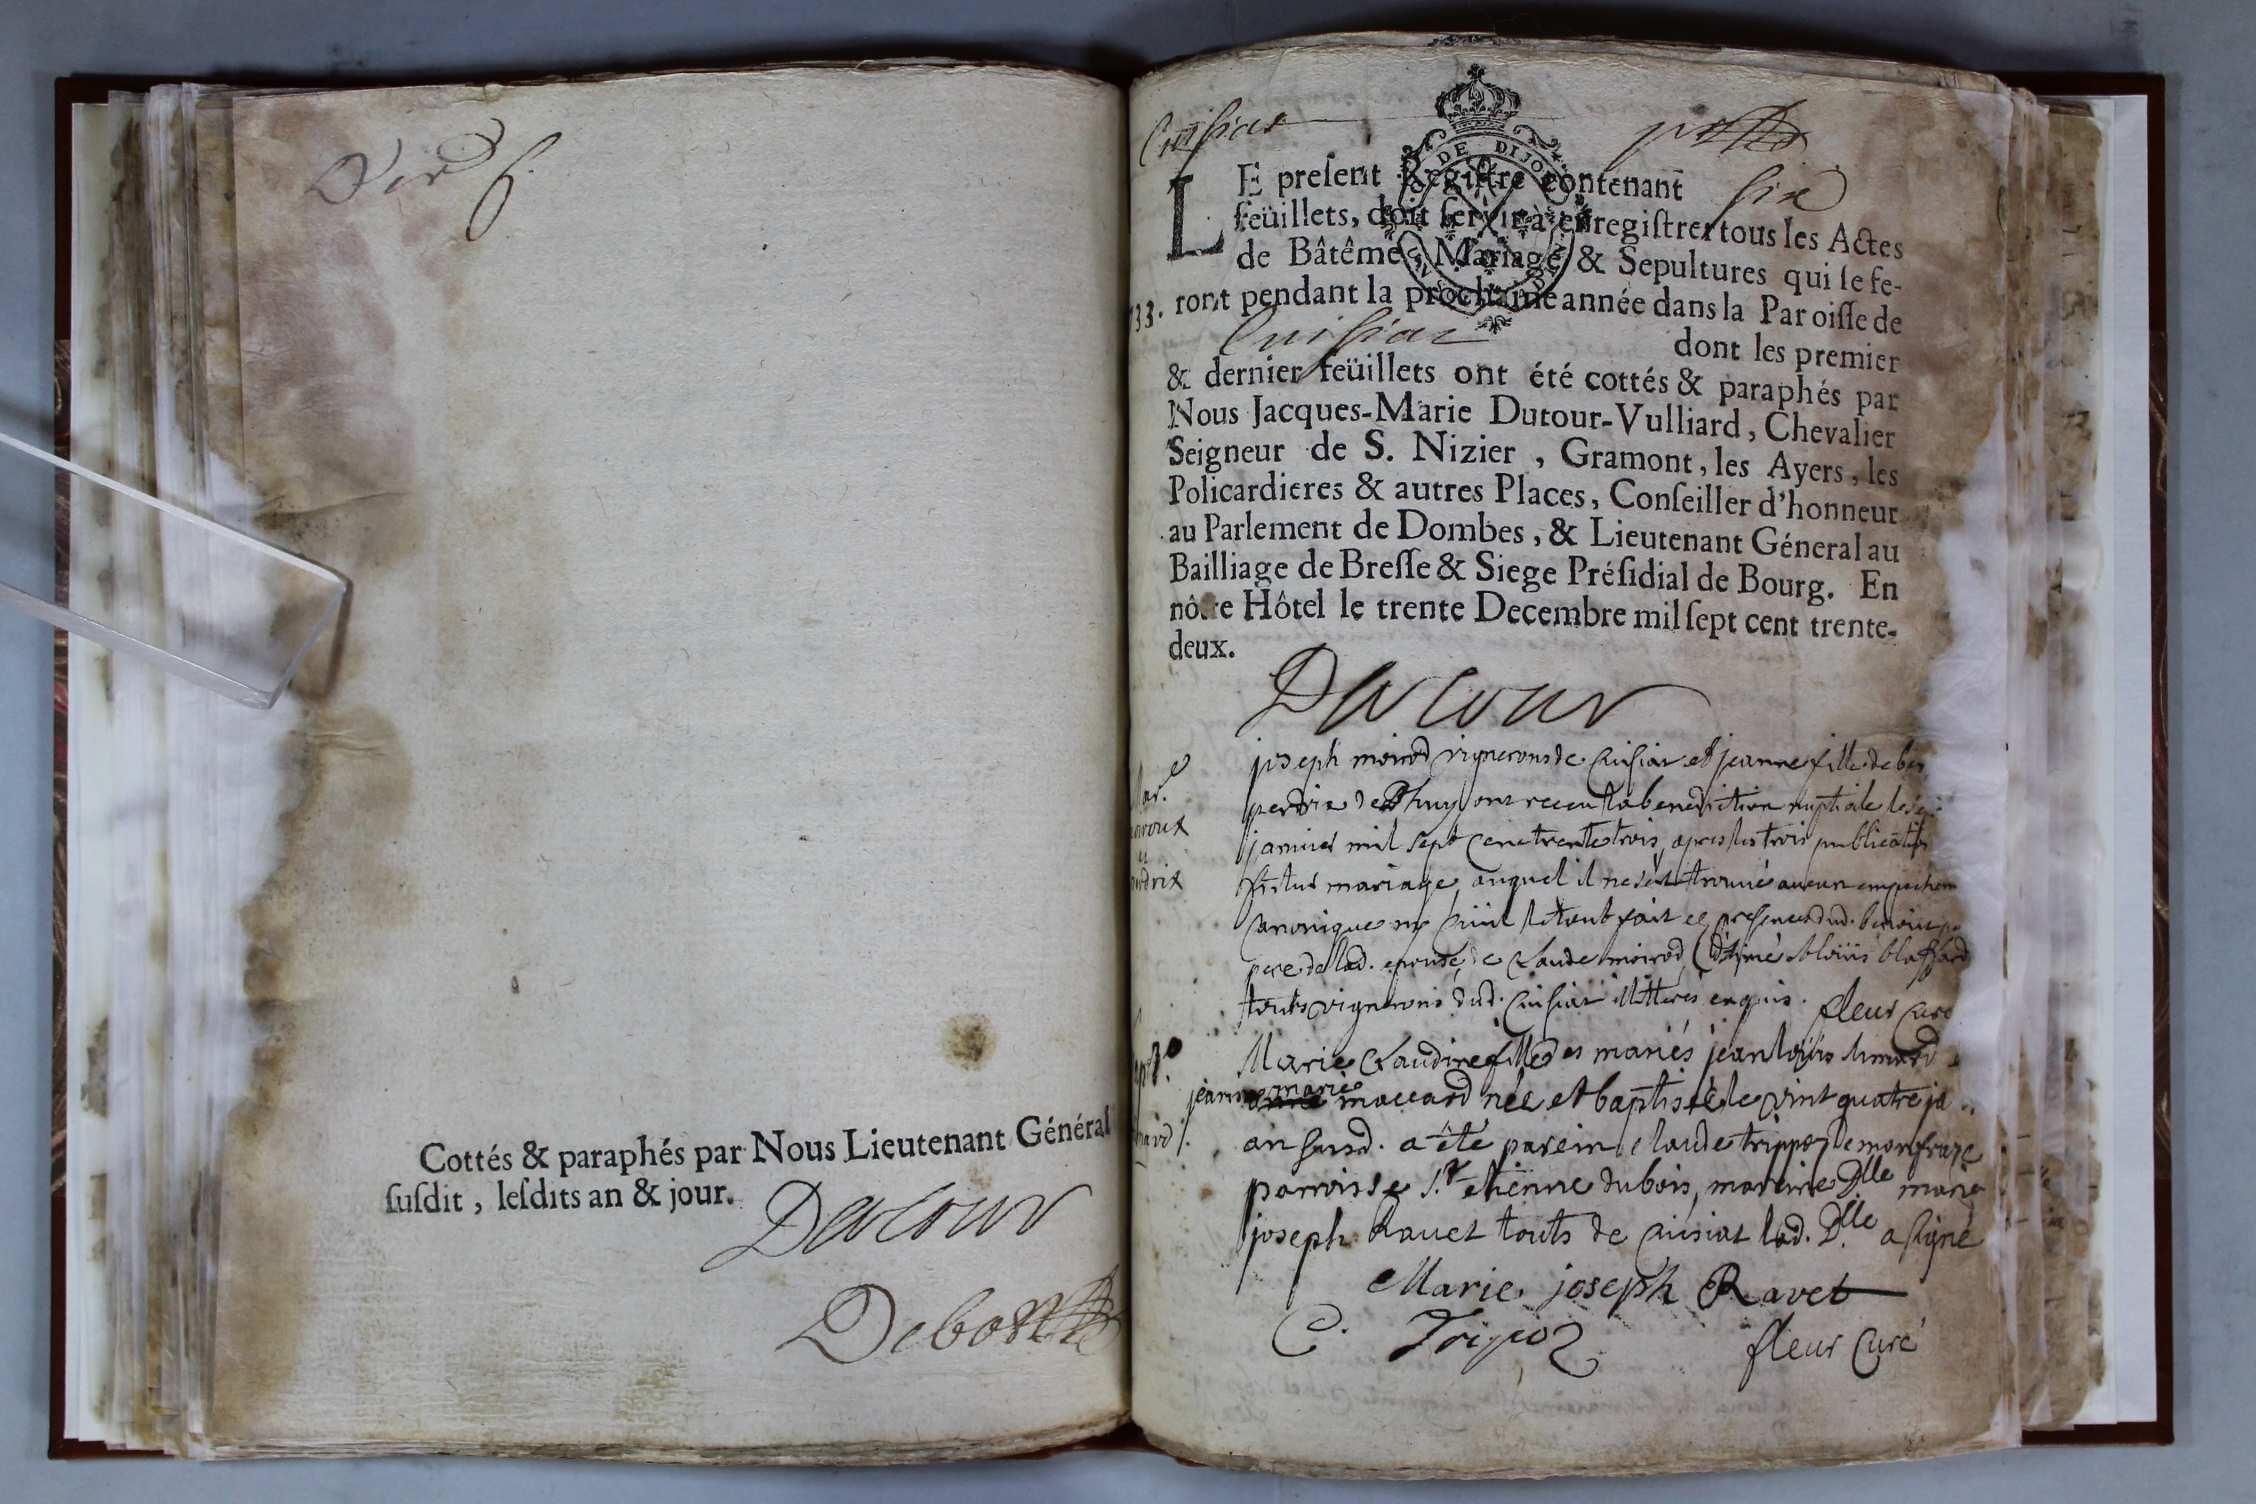 6.
Cottés & paraphés par Nous Lieutenant Général
ſuſdit, leſdits an & jour.
Cuisiat
DE DIJON
LE preſent Regiſtre contenant six
feüillets, doit ſervir à enregiſtrer tous les Actes
de Bâtême, Mariage & Sepultures qui ſe fe-
ront pendant la prochaine année dans la Paroiſſe de
33.
Cuisiat dont les premier
& dernier feüillets ont été cottés & paraphés par
Nous Jacques-Marie Dutour-Vulliard, Chevalier
Seigneur de S. Nizier, Gramont, les Ayers, les
Policardieres & autres Places, Conſeiller d'honneur
au Parlement de Dombes, & Lieutenant Géneral au
Bailliage de Breſſe & Siege Préſidial de Bourg. En
nôtre Hôtel le trente Decembre mil ſept cent trente-
deux.
joseph moirod vigneron de Cuisiat et jeanne fille de
perdrix de ont receu la benediction nuptiale le
janvier mil sept cent trente trois, apres les trois publications
mariage, auquel il ne s'est trouvé aucun
canonique ny civil le tout fait en presence dud. benoit
pere de lad. epouse, de Claude moirod,
touts vignerons dud. Cuisiat illitterés enquis. fleur curé
Marie Claudine fille des mariés jean loüis
jeanne marie maccard née et baptisée le vint quatre
an susd. a été parein Claude trippoz de monfraze
parroisse St etienne du bois, mareine Dlle marie
joseph Ravet touts de Cuisiat lad. Dlle a signé
Marie joseph Ravet
C. Tripoz fleur Curé